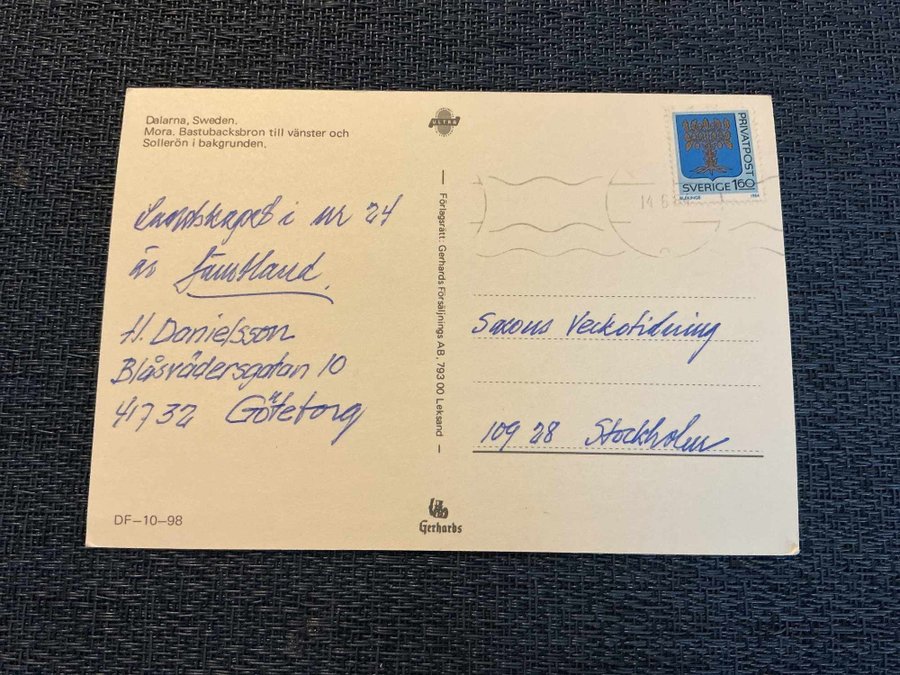 Dalarna, Sweden.
Mora. Bastubacksbron till vänster och
Sollerön i bakgrunden.
ULTRA
PRIVATPOST
SVERIGE 160
BLEKINGE 1984
14 6
Landskapet i nr 24
är Jämtland.
H. Danielsson
Blåsvädersgatan 10
417 32 Göteborg
Förlagsrätt: Gerhards Försäljnings AB, 793 00 Leksand
Saxons Veckotidning
109 28 Stockholm
DF-10-98
Gerhards